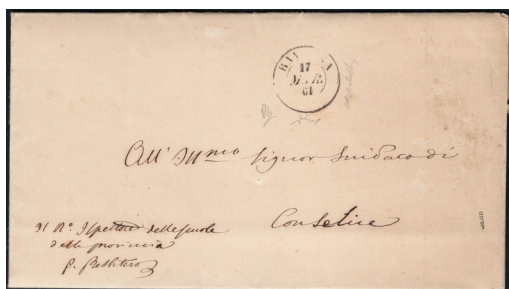 17
MAR
61
All' Illmo Signor Sindaco di
Conselice
Il Ro. Ispettore delle scuole
della provincia
P.